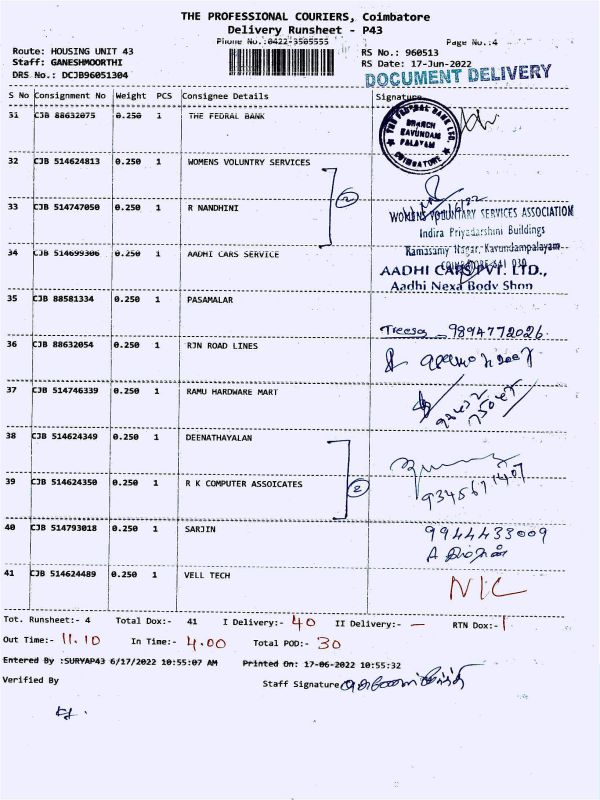 THE PROFESSIONAL COURIERS, Coimbatore
Delivery Runsheet - P43
Phone No.:0422-3505555
Page No.:4
Route: HOUSING UNIT 43
RS No.: 960513
Staff: GANESHMOORTHI
RS Date: 17-Jun-2022
DRS No.: DCJB96051304
DOCUMENT DELIVERY
S No Consignment No Weight PCS Consignee Details Signature
31 CJB 88632075 0.250 1 THE FEDRAL BANK
THE FEDERAL BANK LTD.
BRANCH
KAVUNDAM
PALAYAM
COIMBATORE
32 CJB 514624813 0.250 1 WOMENS VOLUNTRY SERVICES
2
33 CJB 514747050 0.250 1 R NANDHINI
WOMENS VOLUNTARY SERVICES ASSOCIATION
Indira Priyadarshini Buildings
Ramasamy Nagar, Kavundampalayam
34 CJB 514699306 0.250 1 AADHI CARS SERVICE
AADHI CARS PVT. LTD.,
Aadhi Nexa Body Shop
35 CJB 88581334 0.250 1 PASAMALAR
Treesa 9894772026
36 CJB 88632054 0.250 1 RJN ROAD LINES
37 CJB 514746339 0.250 1 RAMU HARDWARE MART
38 CJB 514624349 0.250 1 DEENATHAYALAN
39 CJB 514624350 0.250 1 R K COMPUTER ASSOICATES
2
9345671407
40 CJB 514793018 0.250 1 SARJIN
9944433009
41 CJB 514624489 0.250 1 VELL TECH
N/C
Tot. Runsheet:- 4 Total Dox:- 41 I Delivery:- 40 II Delivery:- — RTN Dox:- 1
Out Time:- 11.10 In Time:- 4.00 Total POD:- 30
Entered By :SURYAP43 6/17/2022 10:55:07 AM Printed On: 17-06-2022 10:55:32
Verified By Staff Signature